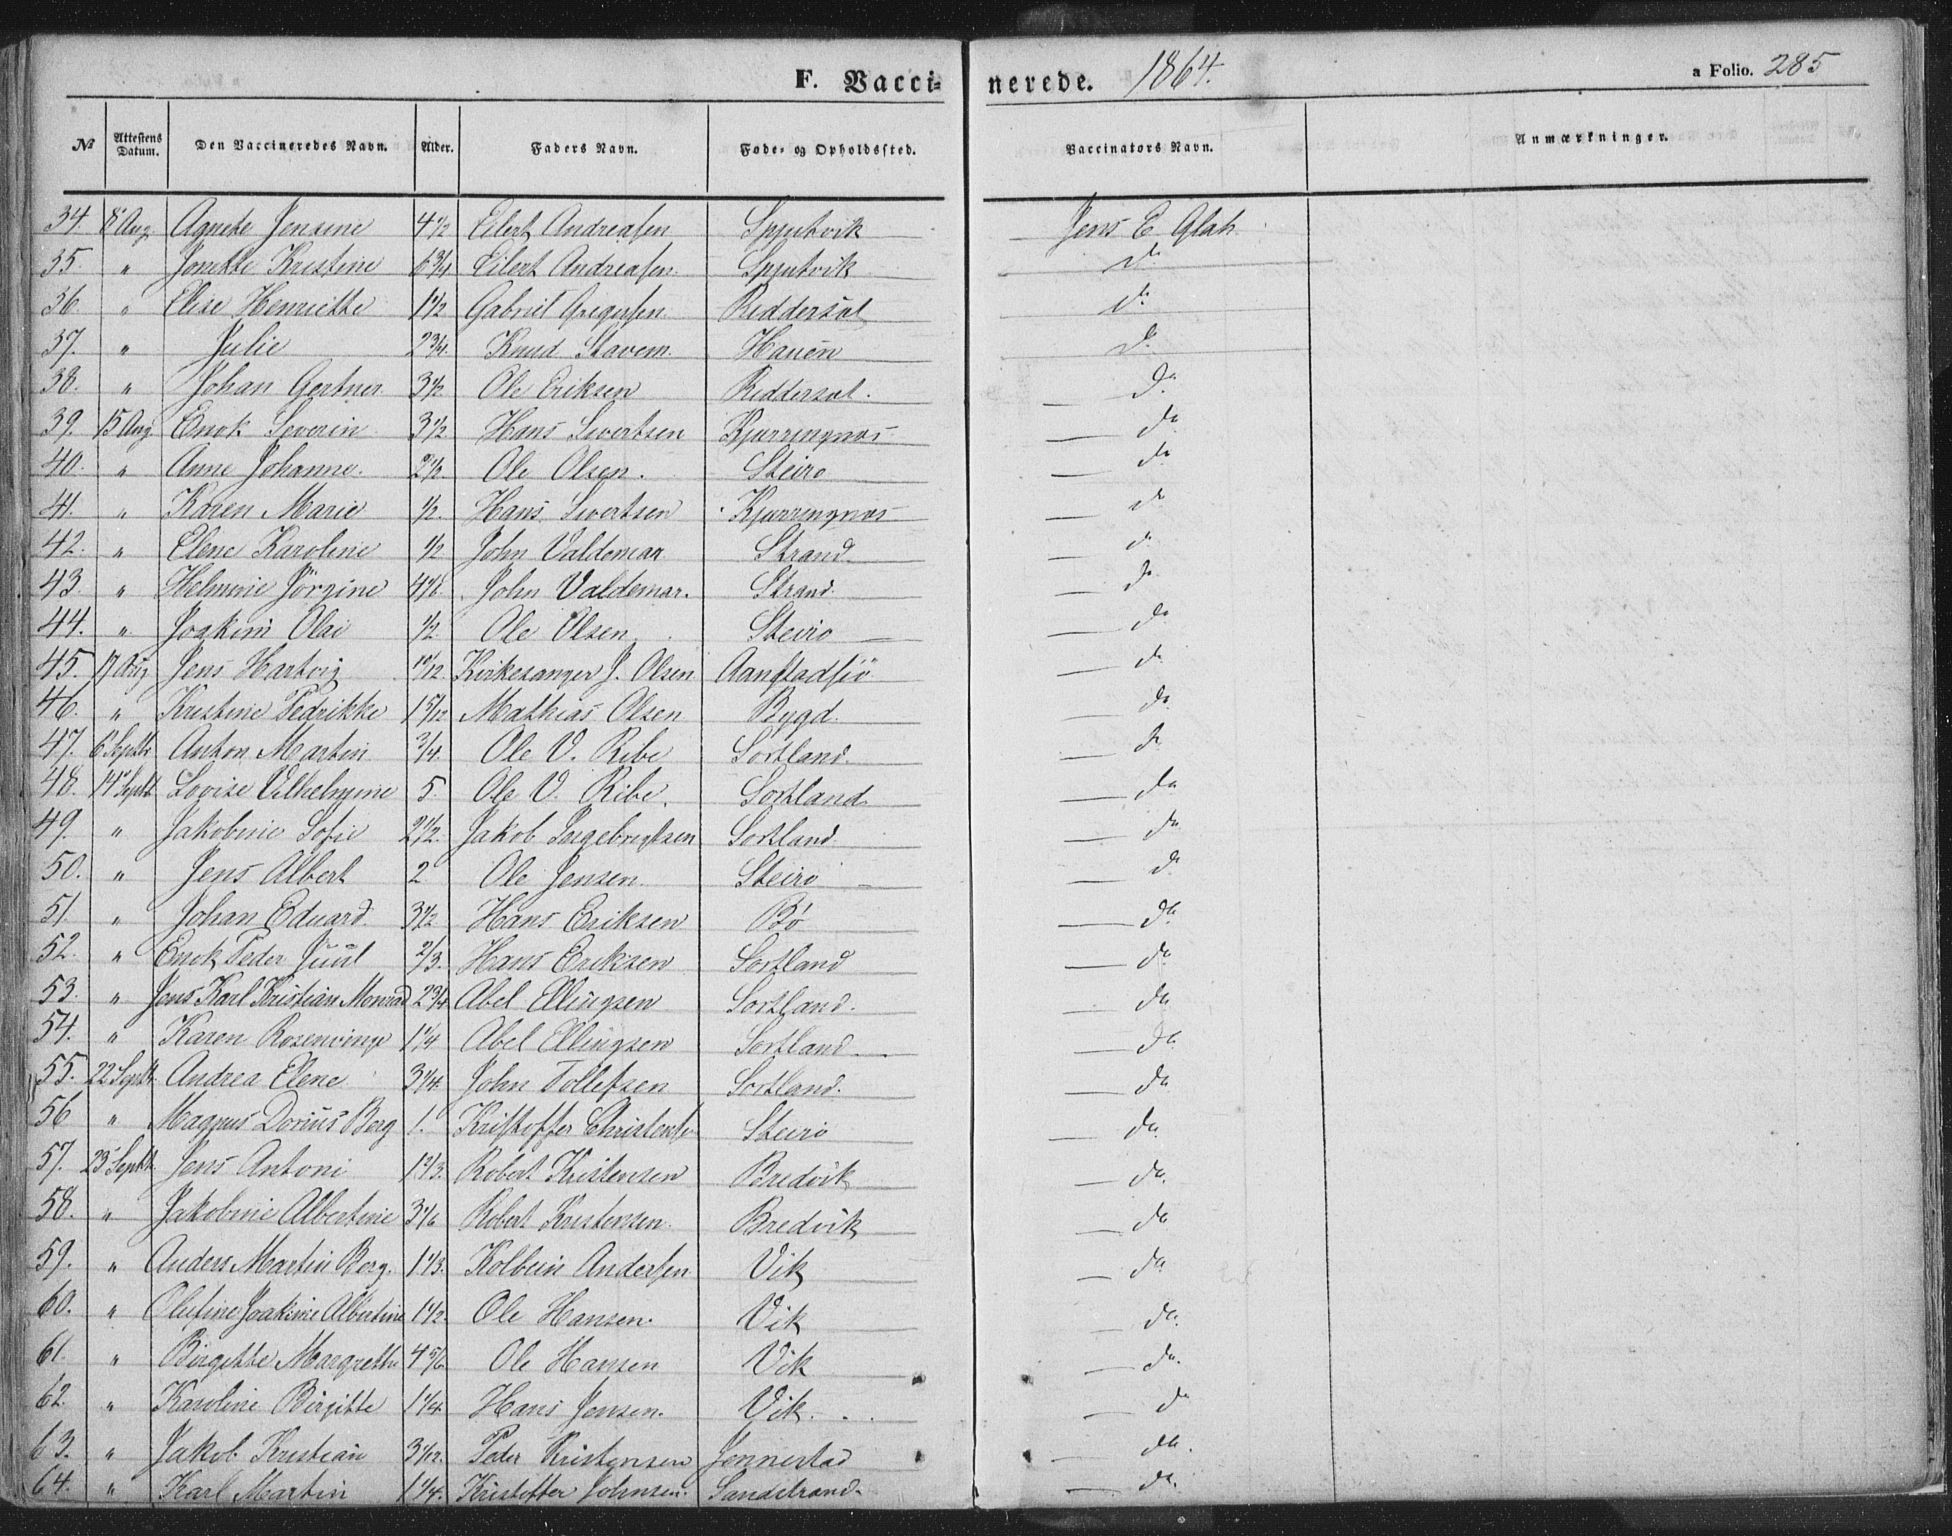 F. Vaccinerede. 1864. a Folio. 285
№ Attestens Datum. Den Vaccineredes Navn. Alder. Faders Navn. Føde- og Opholdssted. Vaccinators Navn. Anmærkninger.
34. 8 Aug Agnete Jensine 4 1/2 Eilert Andreasen Spjutvik Jens E Glah
35. " Jonette Kristine 6 3/4 Eilert Andreasen. Spjutvik do
36. " Elise Henriette 1 1/2 Gabriel Gregersen Reddersal do
37. " Julie 2 3/4. Knud Stavem. Hauen do
38. " Johan Gertner 3 1/2 Ole Eriksen Reddersal. do
39. 15 Aug Enok Severin 3 1/2 Hans Sivertsen Kjerringnæs do
40. " Anne Johanne. 2 1/2 Ole Olsen. Steiro do
41. " Karen Marie 1/2. Hans Sivertsen Kjerringnæs do
42. " Elene Karoline 1/2 John Valdemar Strand do
43 " Helmine Jörgine 4 1/6. John Valdemar. Strand. do
44. " Joakim Olai 1/2. Ole Olsen Steiro do
45. 17 Aug Jens Hartvig 10/12. Kirkesanger J. Olsen Aanstadsjö do
46. " Kristine Pedrikke 1 5/12 Mathias Olsen Bygd. do
47. 6 Septbr Anton Martin 3/4. Ole V. Ribe Sortland. do
48. 14 Septbr Lovise Vilhelmine 5. Ole V. Ribe. Sortland do
49. " Jakobine Sofie 2 1/2. Jakob Ingebrigtsen Sortland do
50. " Jens Albert 2 Ole Jensen Steiro do
51 " Johan Eduard. 3 1/2 Hans Eriksen Bø do
52. " Enok Peder Juul 2/3. Hans Eriksen Sortland do
53. " Jens Karl Kristian Monrad 2 3/4 Abel Ellingsen Sortland. do
54. " Karen Rosenvinge 1 1/4 Abel Ellingsen Sortland do
55. 22 Septbr. Andrea Elene 3 1/4. John Tollefsen Sortland. do
56 " Magnus Dorius Berg 1. Kristoffer Steiro do.
57. 23 Septbr. Jens Antoni 1 1/3. Robert Kristensen Bredvik do.
58. " Jakobine Albertine 3 1/6 Robert Kristensen Bredvik do
59. " Anders Martin Berg. 1 1/3. Kolbein Andersen Vik do
60. " Olufine Joakime Albertine 1 1/2. Ole Hansen. Vik do.
61. " Birgitte Margrethe 4 5/6 Ole Hansen Vik do.
62. " Karoline Birgitte 1 1/4. Hans Jensen. Vik. do
63. " Jakob Kristian 3 1/12. Peder Kristensen Jennestad do.
64. " Karl Martin 1 1/4. Kristoffer Johnsen. Sandstrand. do.